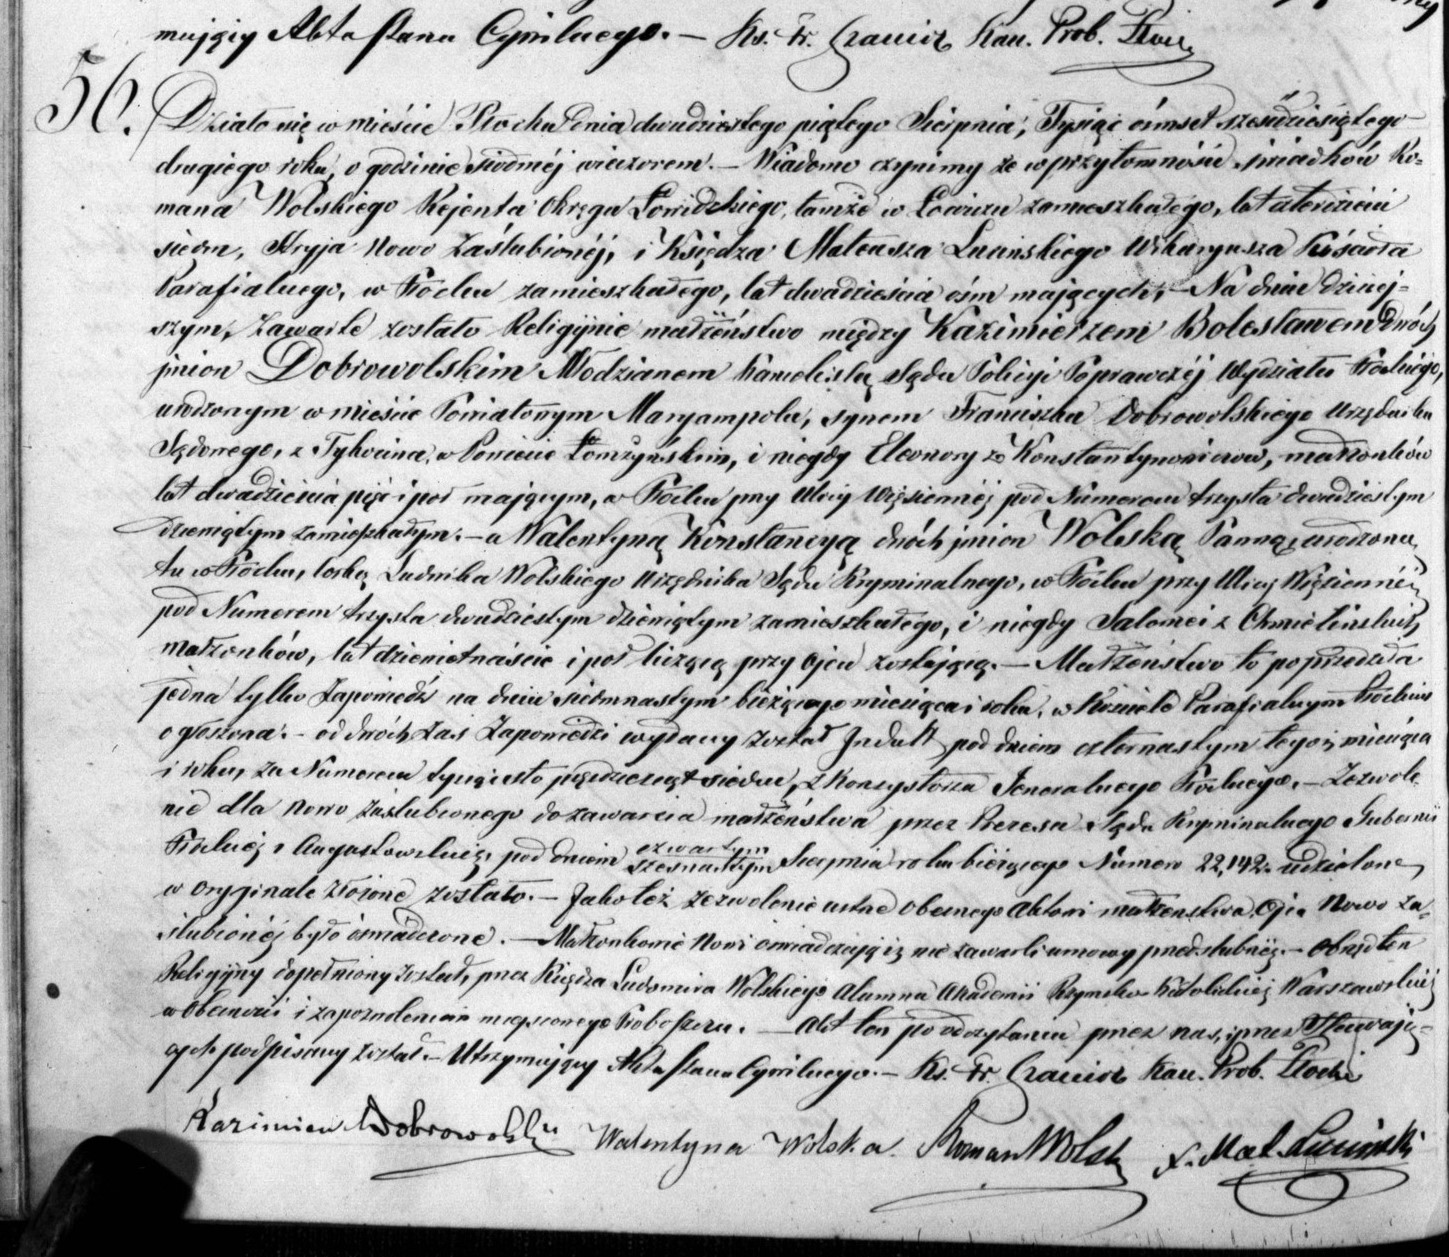 mujący Akta Stanu Cywilnego. — Ks. Fr. Kan. Prob. Płocki
56.
Działo się w mieście Płocku dnia dwudziestego piątego Sierpnia, Tysiąc ośmset sześdziesiątego
drugiego roku, o godzinie siódméj wieczorem. — Wiadomo czynimy że w przytomności świadków Ro=
mana Wolskiego Rejenta Okręgu Łowickiego, tamże w Łowiczu zamieszkałego, lat czterdzieści
siedm, Stryja Nowo Zaślubionéj, i Księdza Mateusza Wikaryusza Kościoła
Parafialnego, w Płocku zamieszkałego, lat dwadzieścia ośm mających; — Na dniu dzisiej=
szym, Zawarte zostało Religijnie małżeństwo między Kazimierzem Bolesławem dwóch
imion Dobrowolskim Młodzianem Kancelistą Sądu Policyi Poprawczéj Wydziału Płockiego,
urodzonym w mieście Powiatowym Maryampolu, synem Franciszka Dobrowolskiego Urzędnika
Sądowego, z Tykocina, w Powiecie Łomżyńskim, i niegdy Eleonory z Konstantynowiczów, małżonków
lat dwadzieścia pięć i pół mającym, w Płocku przy Ulicy Więziennéj pod Numerem trzysta dwudziestym
dziewiątym zamieszkałym. — a Walentyną Konstancyą dwóch imion Wolską Panną, urodzoną
tu w Płocku, córką Ludwika Wolskiego Urzędnika Sądu Kryminalnego, w Płocku przy Ulicy Więziennéj
pod Numerem trzysta dwudziestym dziewiątym zamieszkałego, i niegdy Salomei z Chmielińskich,
małżonków, lat dziewietnaście i pół liczącą przy Ojcu zostającą. — Małżeństwo to poprzedziła
jedna tylko Zapowiedź na dniu siedmnastym bieżącego miesiąca i roku, w Kościele Parafialnym Płockim
ogłoszona. — od dwóch zaś Zapowiedzi wydany został Indult pod dniem czternastym tegoż miesiąca
i roku, za Numerem tysiąc sto pięćdziesiąt siedm, z Konsystorza Jeneralnego Płockiego. — Zezwole=
nie dla Nowo zaślubionego do zawarcia małżeństwa przez Prezesa Sądu Kryminalnego Gubernii
Płockiéj i Augustowskiéj, pod dniem czwartym szesnastym Sierpnia roku bieżącego Numero 22,142. udzielone,
w oryginale złożone zostało. — Jakoteż zezwolenie ustne obecnego Aktowi małżeństwa, Ojca Nowo za=
ślubionéj było oświadczone. — Małżonkowie Nowi oświadczają iż nie zawarli umowy przedślubnéj. — Obrzęd ten
Religijny dopełniony został, przez Księdza Ludomira Wolskiego Alumna Akademii Rzymsko Katolickiéj Warszawskiéj
w obecności i zapozwoleniem miejscowego Proboszcza. — Akt ten po odczytaniu przez nas, i przez Stawają=
cych podpisany został. — Utrzymujący Akta Stanu Cywilnego. — Ks. Fr. Kan. Prob. Płocki
Kazimierz Dobrowolski Walentyna Wolska. Roman Wolski X. Mat.